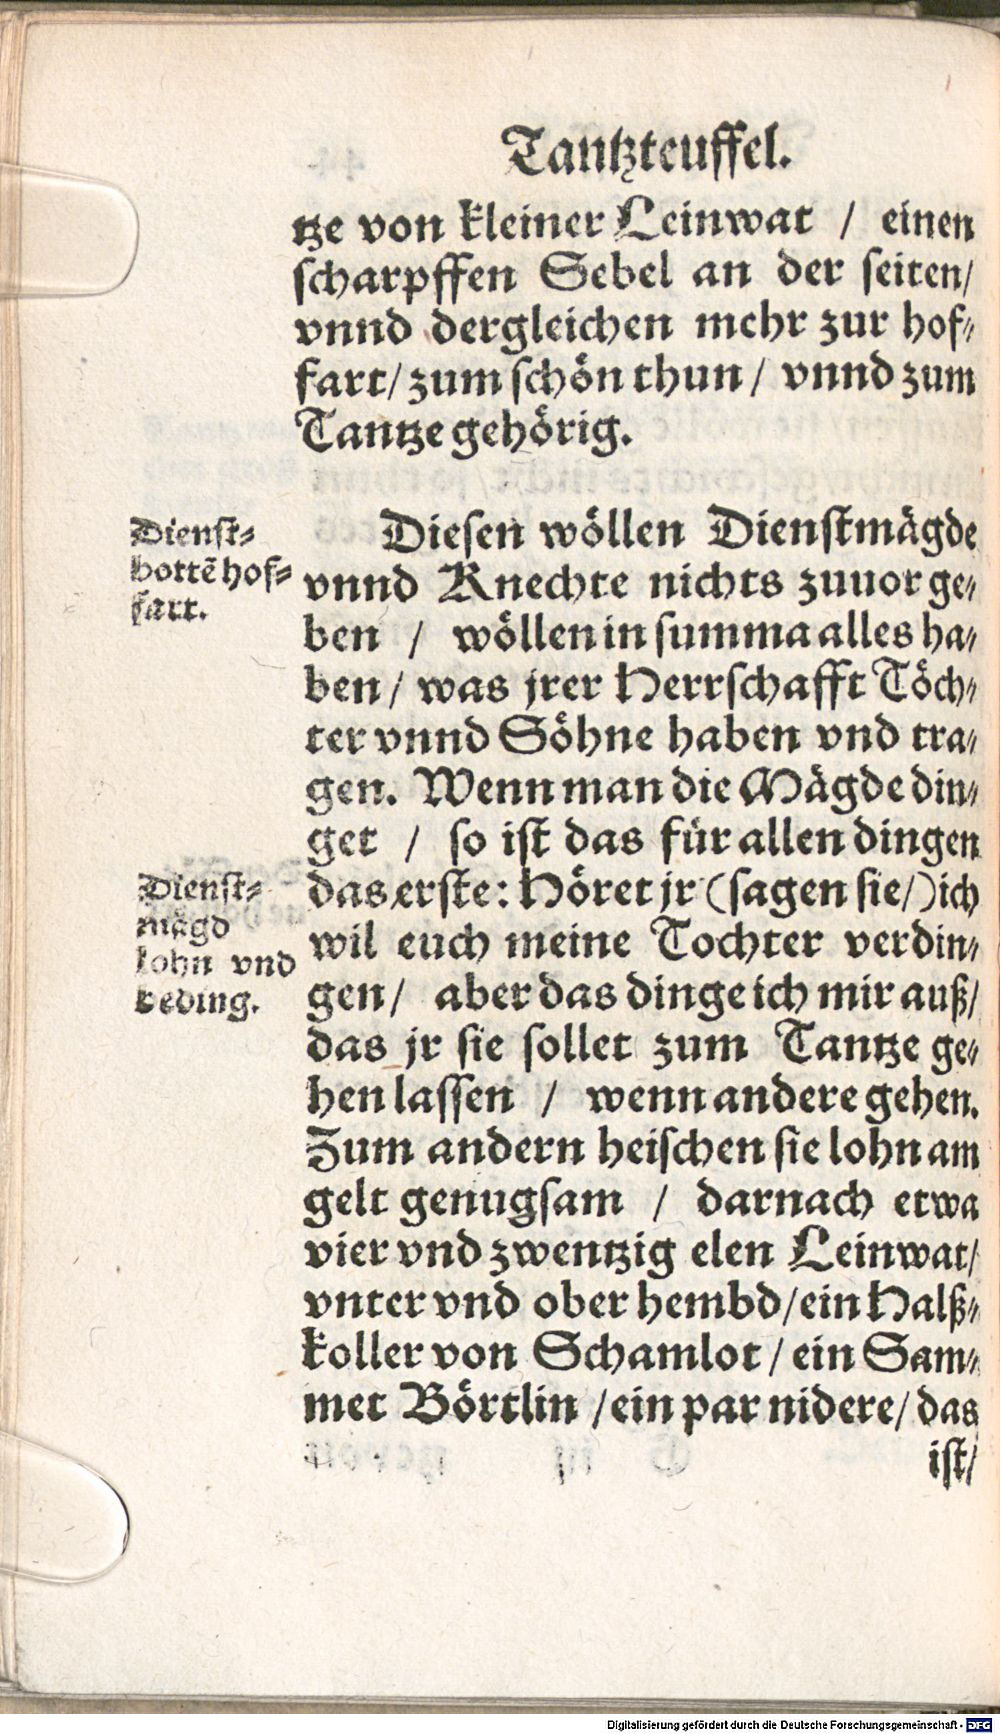 Tantzteuffel.
tze von kleiner Leinwat / einen
scharpffen Sebel an der seiten/
vnnd dergleichen mehr zur hof⸗
fart/ zum schön thun/ vnnd zum
Tantze gehörig.
Dienst⸗
bottẽ hof⸗
fart.
Diesen wöllen Dienstmägde
vnnd Knechte nichts zuuor ge⸗
ben / wöllen in summa alles ha⸗
ben/ was jrer Herrschafft Töch⸗
ter vnnd Söhne haben vnd tra⸗
gen. Wenn man die Mägde din⸗
get / so ist das für allen dingen
Dienst⸗
mägd
lohn vnd
beding.
das erste: Höret jr (sagen sie/) ich
wil euch meine Tochter verdin⸗
gen/ aber das dinge ich mir auß/
das jr sie sollet zum Tantze ge⸗
hen lassen / wenn andere gehen.
Zum andern heischen sie lohn am
gelt genugsam / darnach etwa
vier vnd zwentzig elen Leinwat/
vnter vnd ober hembd/ ein Halß⸗
koller von Schamlot / ein Sam⸗
met Börtlin / ein par nidere/ das
ist/
Digitalisierung gefördert durch die Deutsche Forschungsgemeinschaft - DFG